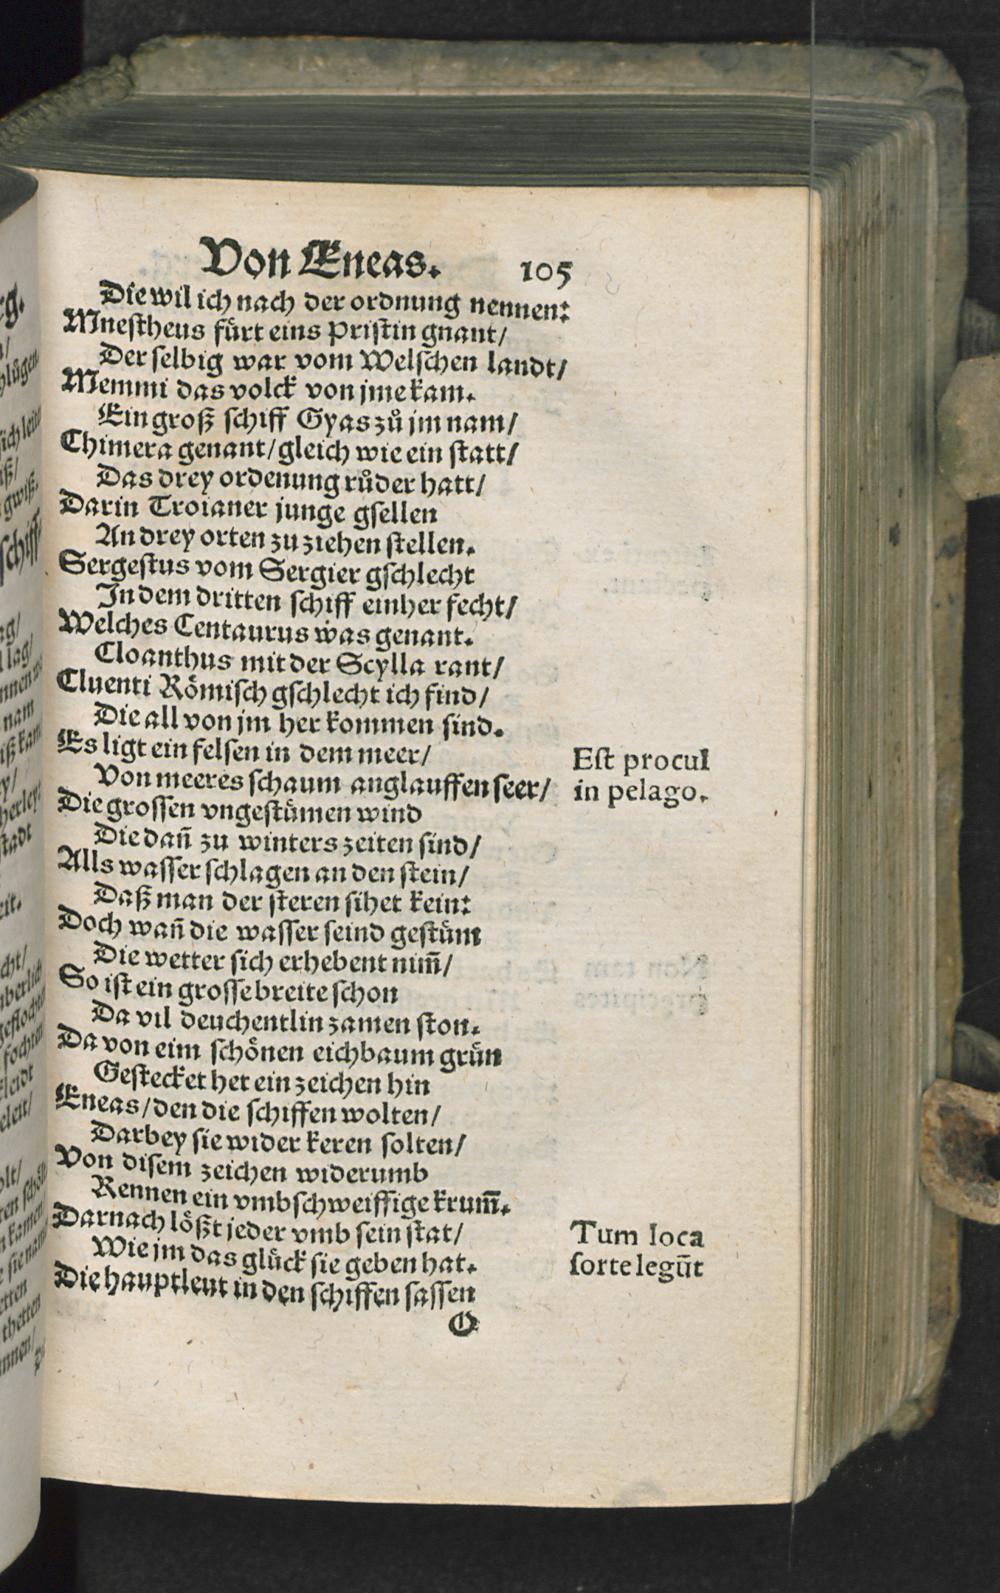 Von Æneas. 105
Die wil ich nach der ordnung nennen:
Mnestheus fürt eins Pristin gnant/
Der selbig war vom Welschen landt/
Memmi das volck von jme kam.
Ein groß schiff Gyas zů jm nam/
Chimera genant/ gleich wie ein statt/
Das drey ordenung růder hatt/
Darin Troianer junge gsellen
An drey orten zu ziehen stellen.
Sergestus vom Sergier gschlecht
In dem dritten schiff einher fecht/
Welches Centaurus was genant.
Cloanthus mit der Scylla rant/
Cluenti Römisch gschlecht ich find/
Die all von jm her kommen sind.
Es ligt ein felsen in dem meer/
Von meeres schaum anglauffen seer/
Est procul
in pelago.
Die grossen vngestümen wind
Die dañ zu winters zeiten sind/
Alls wasser schlagen an den stein/
Daß man der steren sihet kein:
Doch wañ die wasser seind gestüm
Die wetter sich erhebent nim̄/
So ist ein grosse breite schon
Da vil deuchentlin zamen ston.
Da von eim schönen eichbaum grün
Gestecket het ein zeichen hin
Æneas/ den die schiffen wolten/
Darbey sie wider keren solten/
Von disem zeichen widerumb
Rennen ein vmbschweiffige krum̄.
Darnach lößt jeder vmb sein stat/
Wie jm das glück sie geben hat.
Tum loca
sorte legūt
Die hauptleut in den schiffen sassen
O